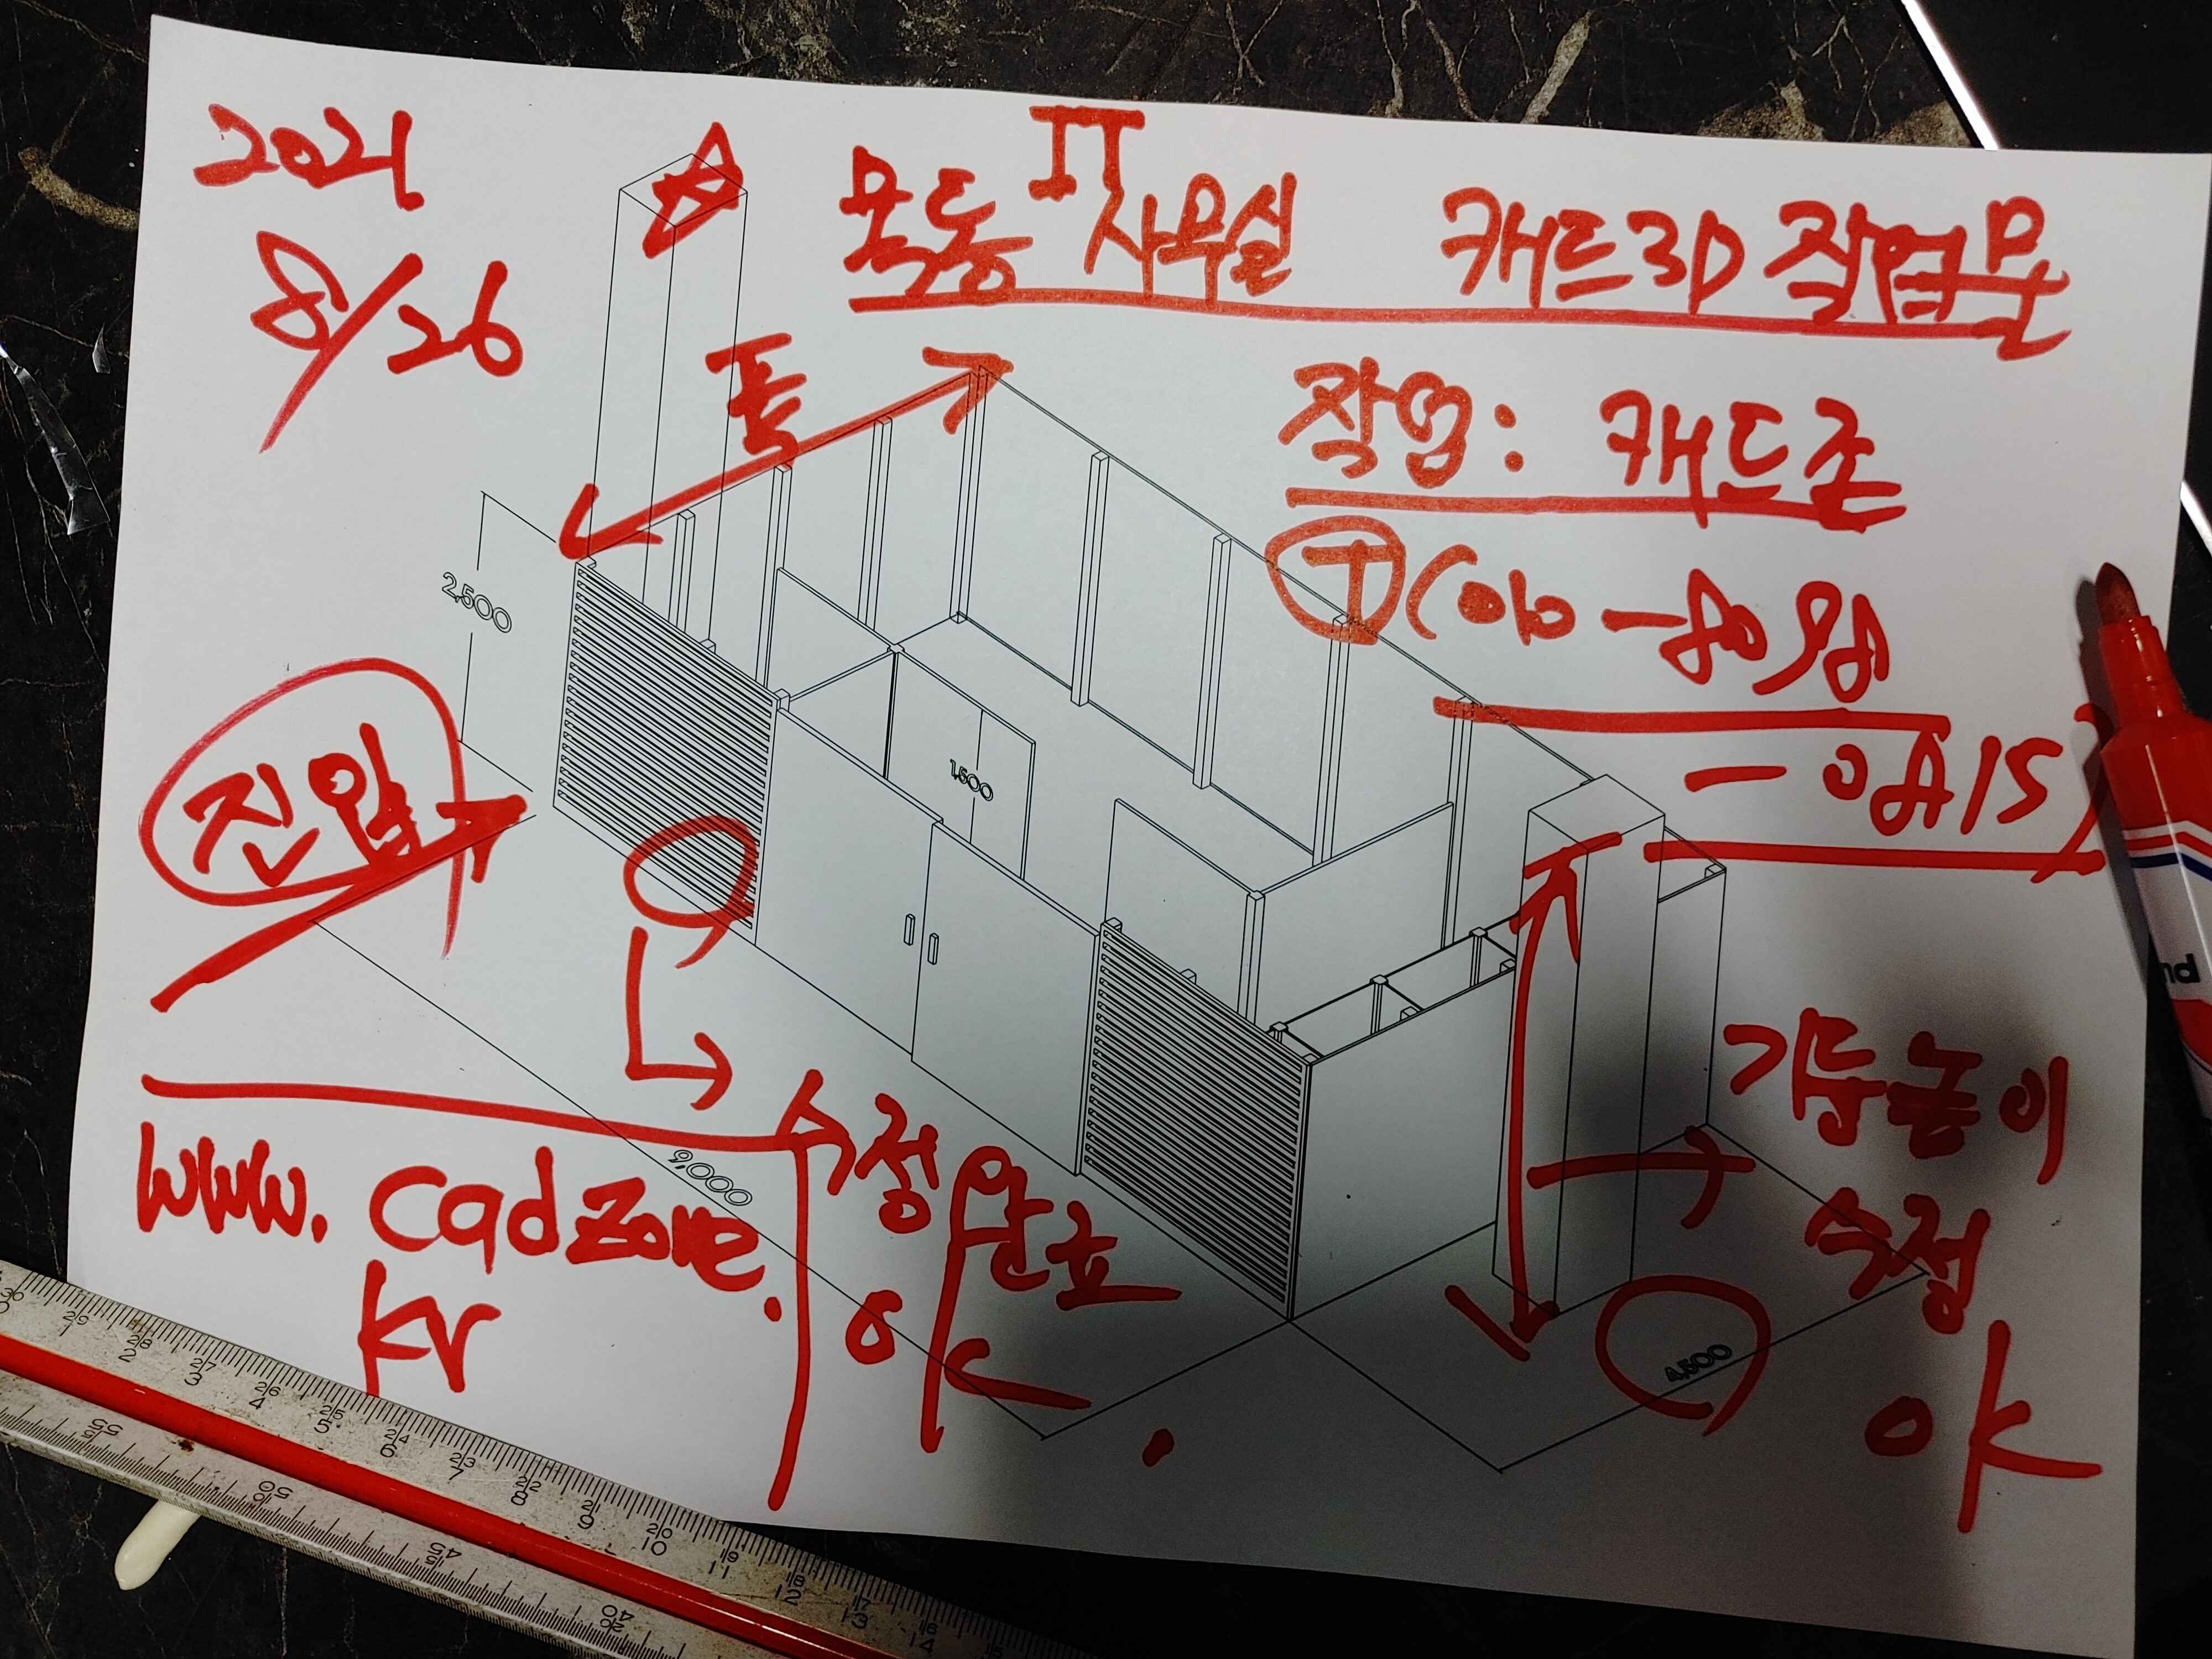 2021
8/26
목동 IT 사무실 캐드3D 작업물
폭
작업: 캐드존
2,500
진입
1,500
기둥높이
수정
OK
www.cadzone.
kr
9,000
수정완료
OK.
4,500